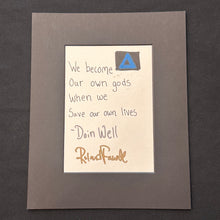 We become
Our own gods
When we
Save our own lives
-Dain Well